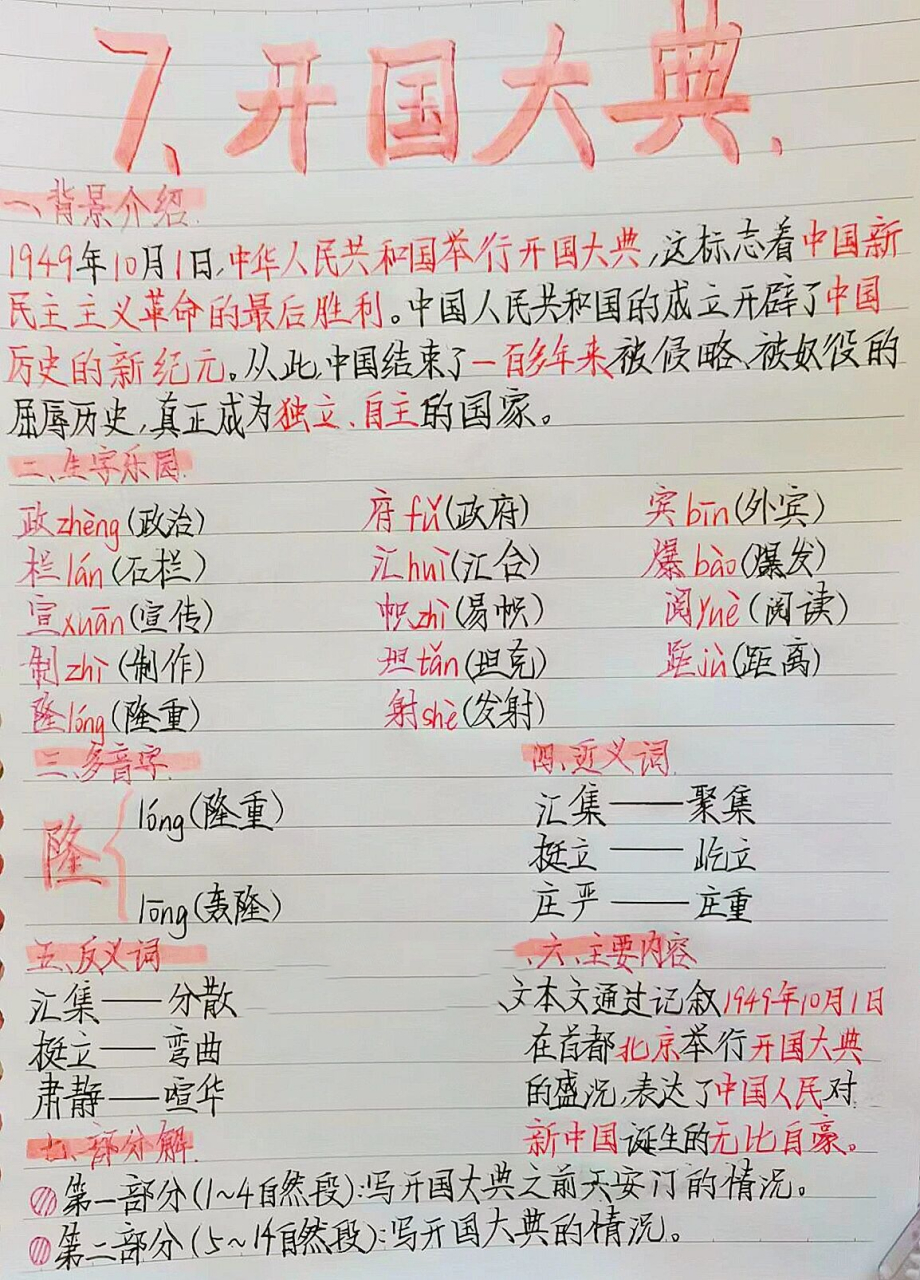 7、开国大典、
一、背景介绍
1949年10月1日,中华人民共和国举行开国大典,这标志着中国新
民主主义革命的最后胜利。中国人民共和国的成立开辟了中国
历史的新纪元。从此,中国结束了一百多年来被侵略、被奴役的
屈辱历史,真正成为独立、自主的国家。
二、生字乐园
政zhèng(政治) 府fǔ(政府) 宾bīn(外宾)
栏lán(石栏) 汇huì(汇合) 爆bào(爆发)
宣xuān(宣传) 帜zhì(易帜) 阅yuè(阅读)
制zhì(制作) 坦tǎn(坦克) 距jù(距离)
隆lóng(隆重) 射shè(发射)
三、多音字
隆 lóng(隆重)
lōng(轰隆)
四、近义词
汇集——聚集
挺立——屹立
庄严——庄重
五、反义词
汇集——分散
挺立——弯曲
肃静——喧华
六、主要内容
文本文通过记叙1949年10月1日
在首都北京举行开国大典
的盛况,表达了中国人民对
新中国诞生的无比自豪。
七、部分解
第一部分(1~4自然段):写开国大典之前天安门的情况。
第二部分(5~14自然段):写开国大典的情况。